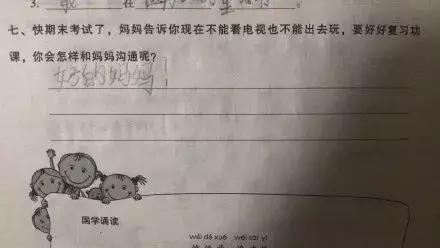 3.
七、快期末考试了，妈妈告诉你现在不能看电视也不能出去玩，要好好复习功
课，你会怎样和妈妈沟通呢？
好的妈妈！
国学诵读
wéi dé xué wéi cái yì